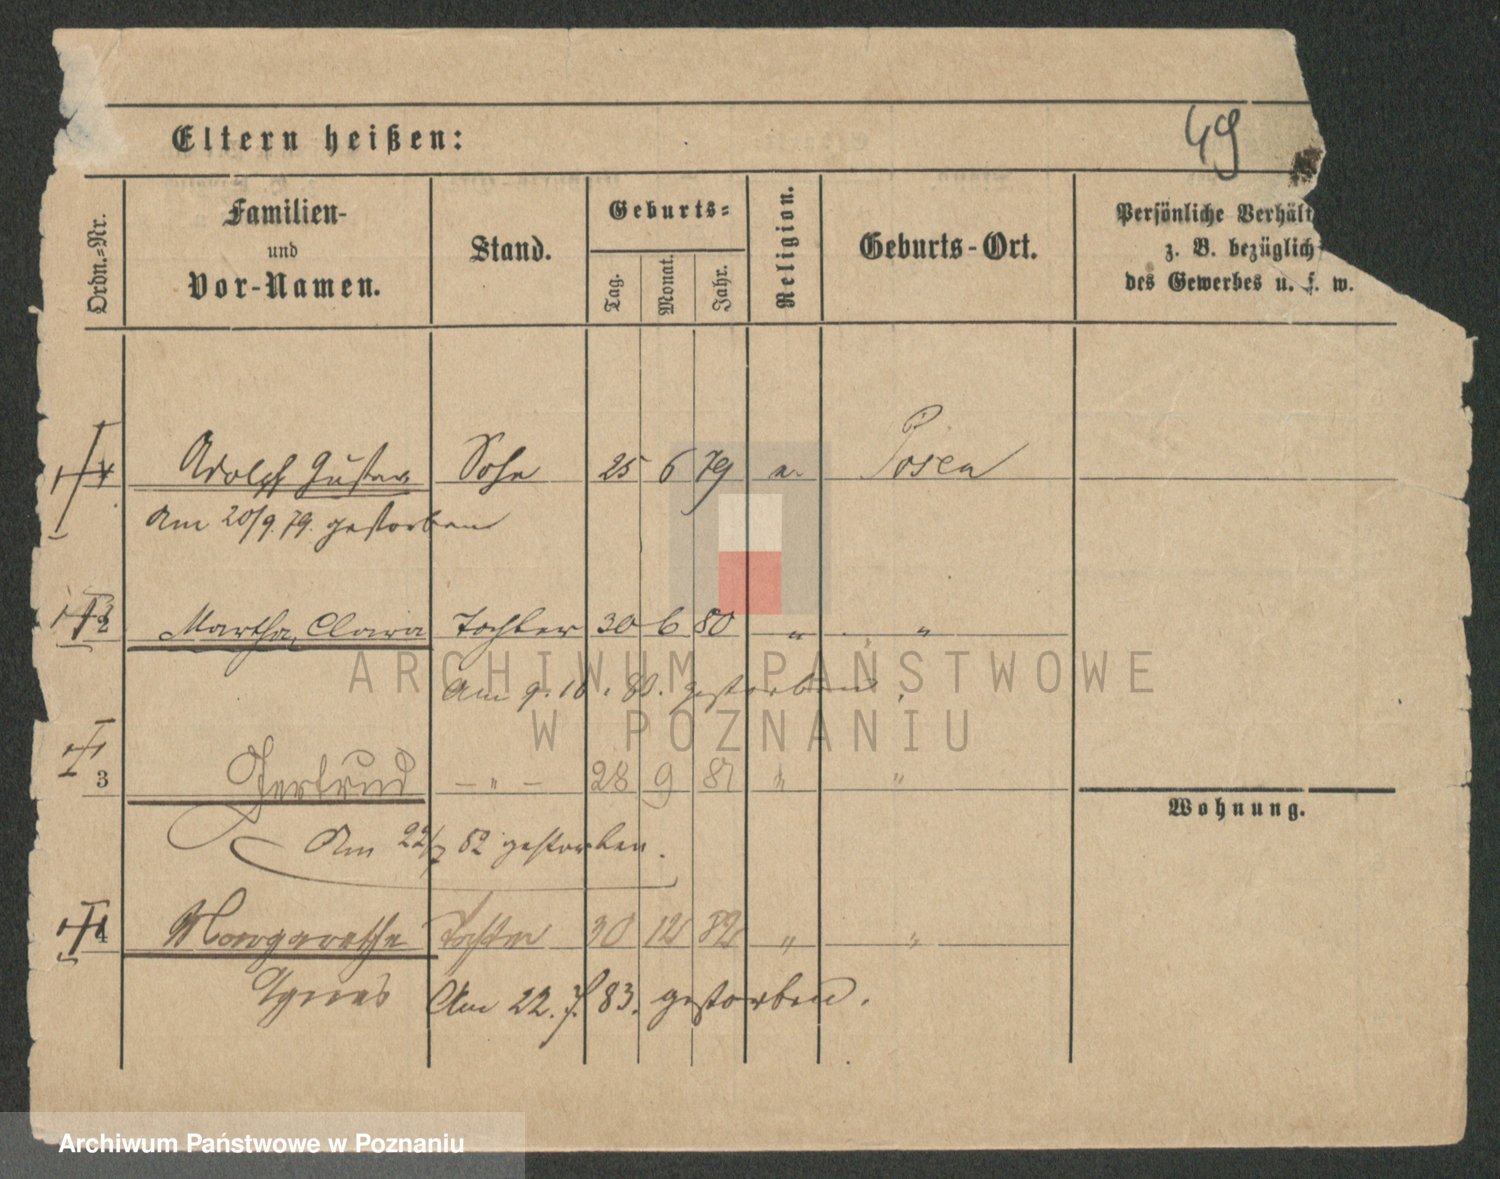 49
Eltern heißen:
Ordn.-Nr.
Familien-
und
Vor-Namen.
Stand.
Geburts-
Tag.
Monat.
Jahr.
Religion.
Geburts-Ort.
Persönliche Verhält
z. B. bezüglich
des Gewerbes u. s. w.
Adolph Gustav Sohn 25 6 79 Posen
Am 20/9. 79. gestorben
2 Martha, Clara Tochter 30 6 80 " "
Am 9. 10. 80. gestorben.
3 Gertrud — " — 28 9 81 " "
Wohnung.
Am 22/7 82 gestorben.
4 Margarethe Tochter 30 12 82 " "
Agnes Am 22. 7. 83. gestorben.
ARCHIWUM PAŃSTWOWE
W POZNANIU
Archiwum Państwowe w Poznaniu